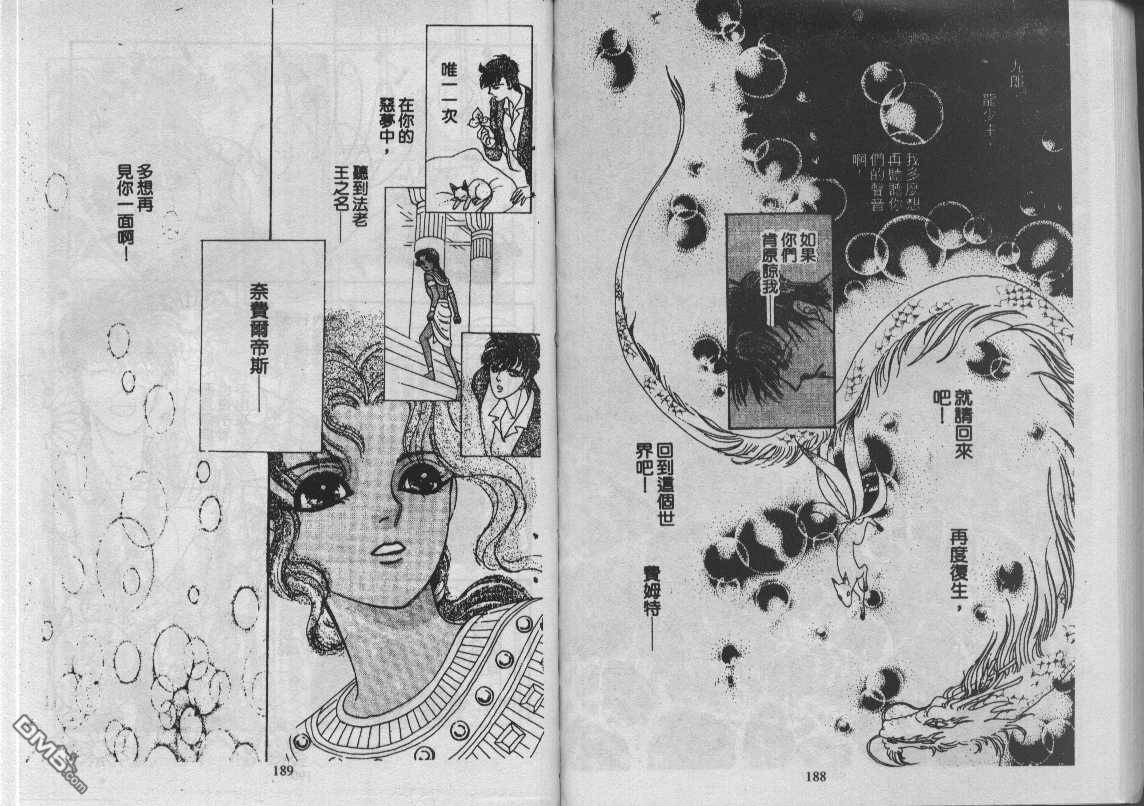 九郎、
龍少主、
我多麼想
再聽聽你
們的聲音
啊！
如果
你們
肯原諒我——
就請回來
吧！
再度復生，
回到這個世
界吧！
費姆特——
188
唯一一次
在你的
惡夢中，
聽到法老
王之名——
奈費爾帝斯——
多想再
見你一面啊！
189